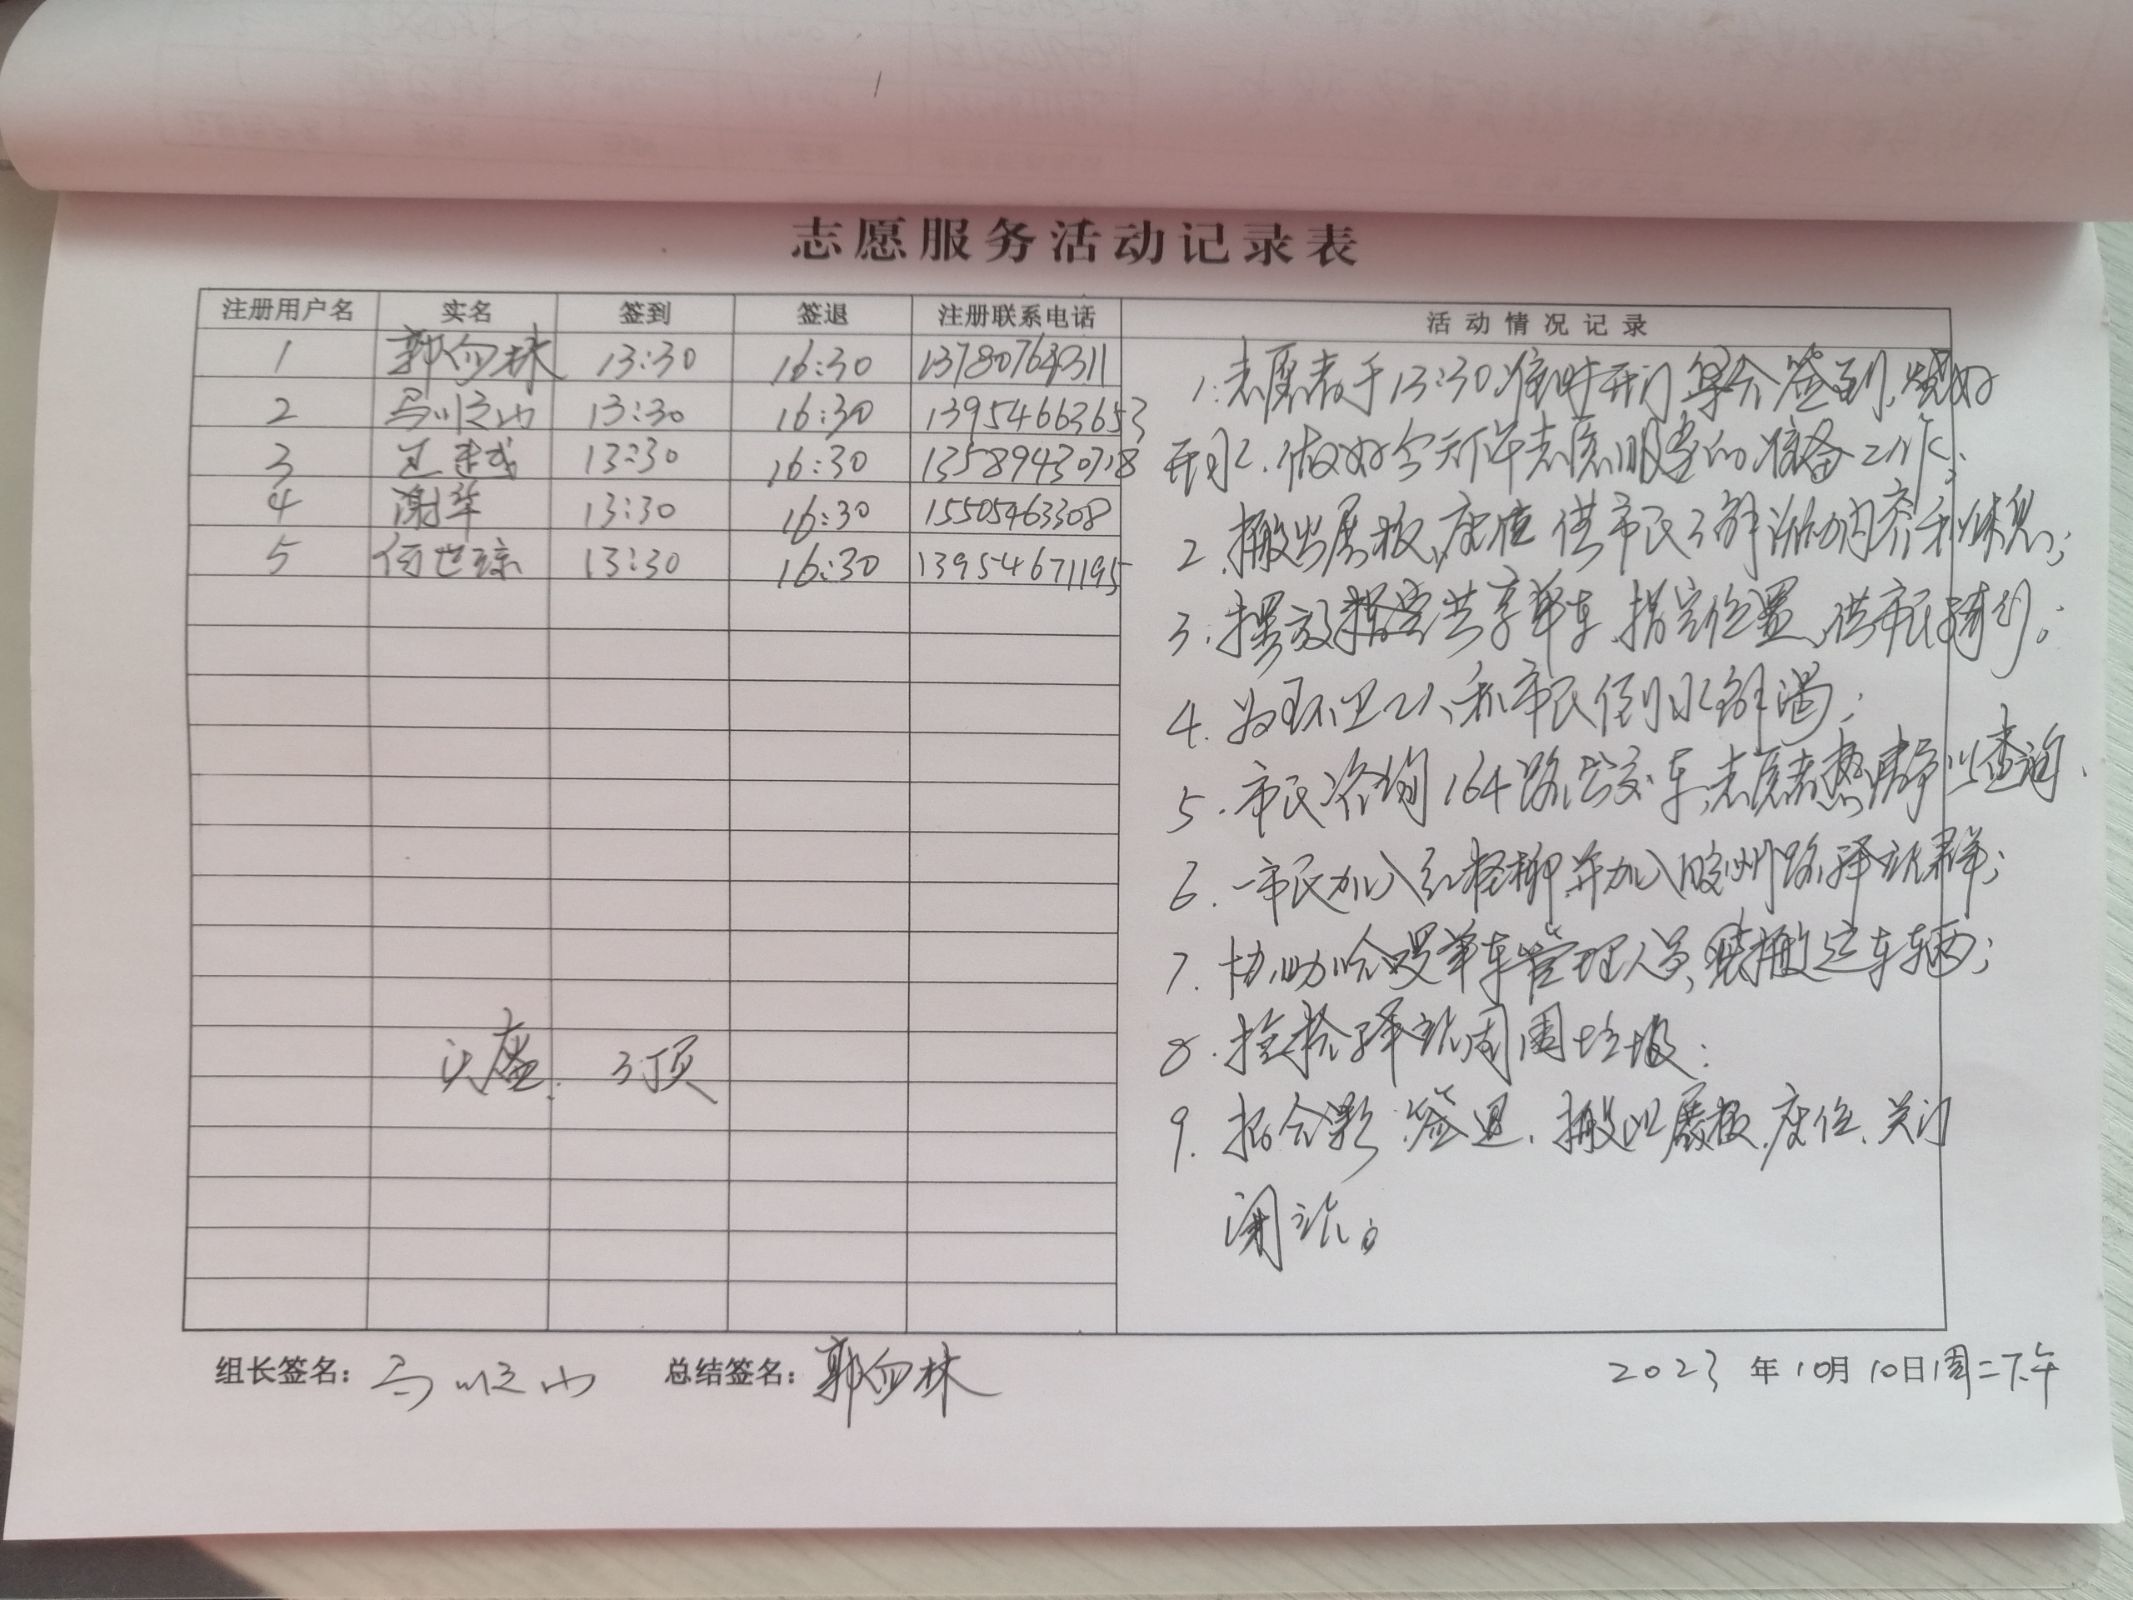 志愿服务活动记录表
注册用户名 实名 签到 签退 注册联系电话 活动情况记录
1 郭向林 13:30 16:30 13780764311
2 马顺山 13:30 16:30 13954663653
3 13:30 16:30 13589430718
4 谢华 13:30 16:30 15505463308
5 何世琼 13:30 16:30 13954671195
头盔: 3顶
1.志愿者于13:30准时开门,签到,烧好
开水.做好今天下午志愿服务的准备工作;
2.搬出展板,座位供市民了解活动内容和休息;
3.摆放 共享单车,指定位置,供市民骑行。
4.为环卫工人和市民倒水解渴;
5.市民咨询164路公交车,志愿者热情予以查询.
6.一市民加入红柽柳并加入胶州路驿站群;
7.协助哈啰单车管理人员, 搬运车辆;
8.捡拾驿站周围垃圾;
9.拍合影,签退,搬回展板,座位,关门
闭站。
组长签名: 马顺山 总结签名: 郭向林 2023年10月10日周二下午